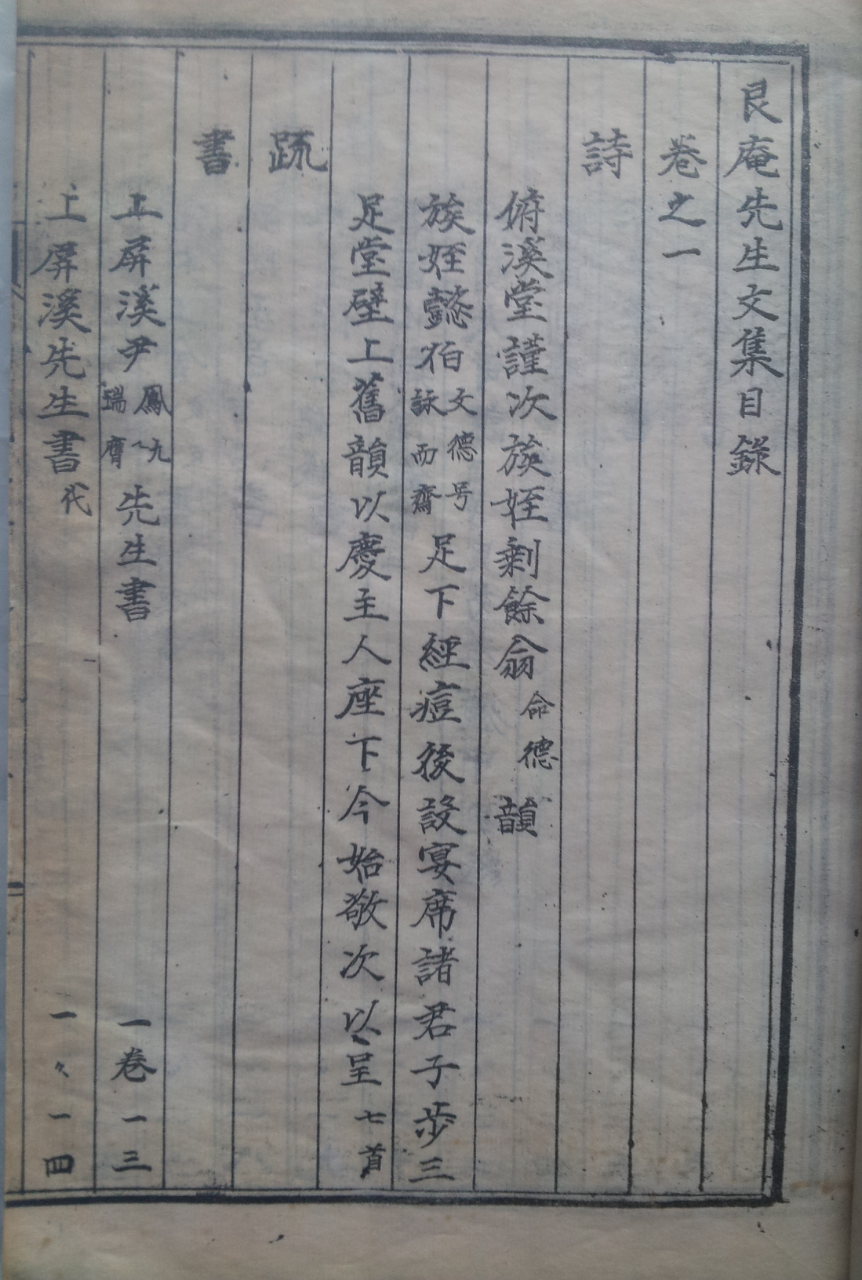 艮庵先生文集目錄
卷之一
詩
俯溪堂謹次族姪剩餘翁命德韻
族姪懿伯文德号詠而齋足下經痘後設宴席諸君子步三
足堂壁上舊韻以慶主人座下今始敬次以呈七首
疏
書
上屏溪尹鳳九瑞膺先生書 一卷一三
上屏溪先生書代 一〻一四